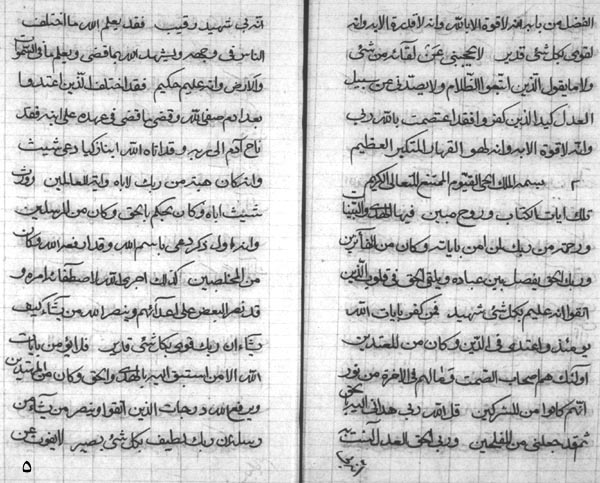 الفضل من با به انه لا قوة الا بالله وانه لا قدرة الا به وانه
لقوي وبكل شئ قدير لا يحجبني عن لقائه من شئ
ولا ما يقول الذين اتبعوا الظلام ولا يصدني عن سبيل
العدل كيد الذين كفروا فقد اعتصمت بالله ربي
وانه لا قوة الا به وانه لهو القهار المتكبر العظيم
بسمه الملك الحي القيوم الممتنع المتعالي الكريم
تلك ايات الكتاب وروح مبين فيها الهدى
ورحمة من ربك لمن امن باياته وكان من الفائزين
وربك الحق يفصل بين عباده ويلقي الحق في قلوب الذين
اتقوا انه عليم بكل شئ شهيد فمن كفر بايات الله
واعتدى في الدين وكان من المعتدين
اولئك هم اصحاب وما لهم في الاخرة من نور
انهم كانوا من المشركين قل الله ربي هداني الى
ثم قد جعلني من المفلحين وربي الحق العدل امنت به
انه ربي شهيد رقيب فقد يعلم الله ما اختلف
الناس في ويشهد الله بما قضى ويعلم ما في السموات
والارض وانه عليم حكيم فقد اختلف الذين اعتدوا
بعد ادم صفي الله وقضى ما قضى في عهده على ابنه فقد
ناح ادم الى ربه وقد اتاه الله ابنا زكيا دعي شيث
وانه كان هبة من ربك لاباه وانه للعالمين
شيث اباه وكان يحكم بالحق وكان من المرسلين
وانه اول ذكر دعي باسم الله وقد ارفعه الله وكان
من المخلصين كذلك اجرى الله لاصطفائه امره و
قد نصر البعض على اعدائهم وينصر الله من يشاء كيف
يشاء ان ربك قوي بكل شئ قادر فلا يؤمن بايات
الله الا من استبق اليه بالهدى والحق وكان من المهتدين
ويرفع الله درجات الذين اتقوا وينصر من يشاء من
ان ربك لطيف بكل شئ بصير لا يفوت عن
۵